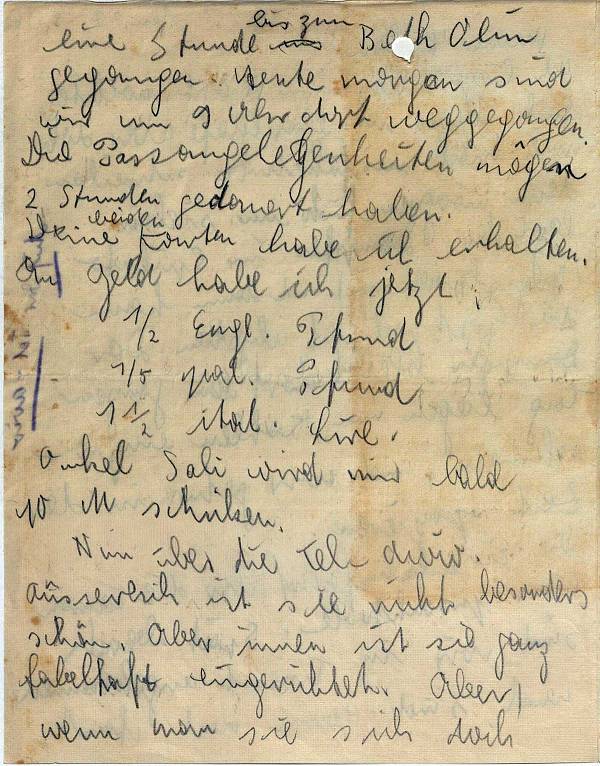 eine Stunde bis zum Beth Olim
gegangen. Heute morgen sind
wir um 9 Uhr dort weggegangen.
Die Passangelegenheiten mögen
2 Stunden gedauert haben.
Deine beiden Karten habe ich erhalten.
An Geld habe ich jetzt:
1/2 Engl. Pfund
1/5 pal. Pfund
1 1/2 ital. Lire.
Onkel Sali wird mir bald
10 M schicken.
Nun über die Tel-Aviv.
äusserlich ist sie nicht besonders
schön. Aber innen ist sie ganz
fabelhaft eingerichtet. Aber,
wenn man sie sich doch